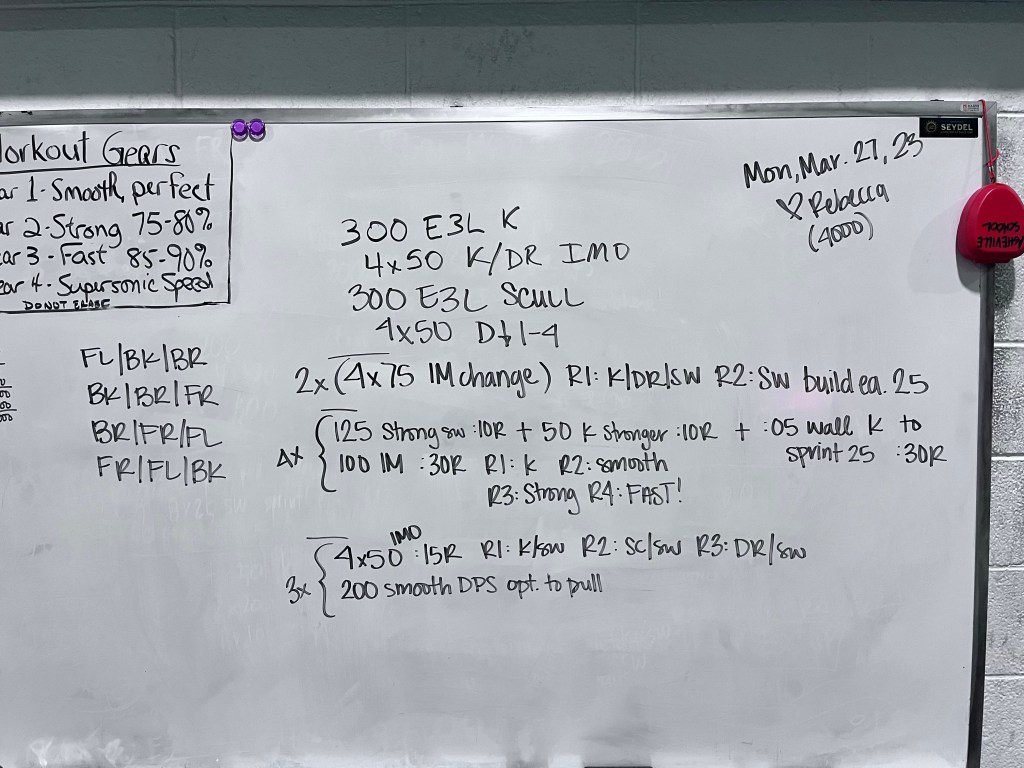 Workout Gears
ar 1 - Smooth, perfect
ar 2 - Strong 75-80%
ear 3 - Fast 85-90%
ear 4 - Supersonic Speed
DO NOT ERASE
SEYDEL
Mon, Mar. 27, 23
♡ Rebecca
(4000)
ASHEVILLE
SCHOOL
300 E3L K
4x50 K/DR IMO
300 E3L SCULL
4x50 D↓1-4
2x (4x75 IM change) R1: K/DR/SW R2: SW build ea. 25
FL/BK/BR
BK/BR/FR
BR/FR/FL
FR/FL/BK
4x { 125 Strong sw :10R + 50 K Stronger :10R + :05 wall K to
sprint 25 :30R
100 IM :30R R1: K R2: smooth
R3: Strong R4: FAST!
3x { 4x50 IMO :15R R1: K/sw R2: SC/sw R3: DR/sw
200 smooth DPS opt. to pull